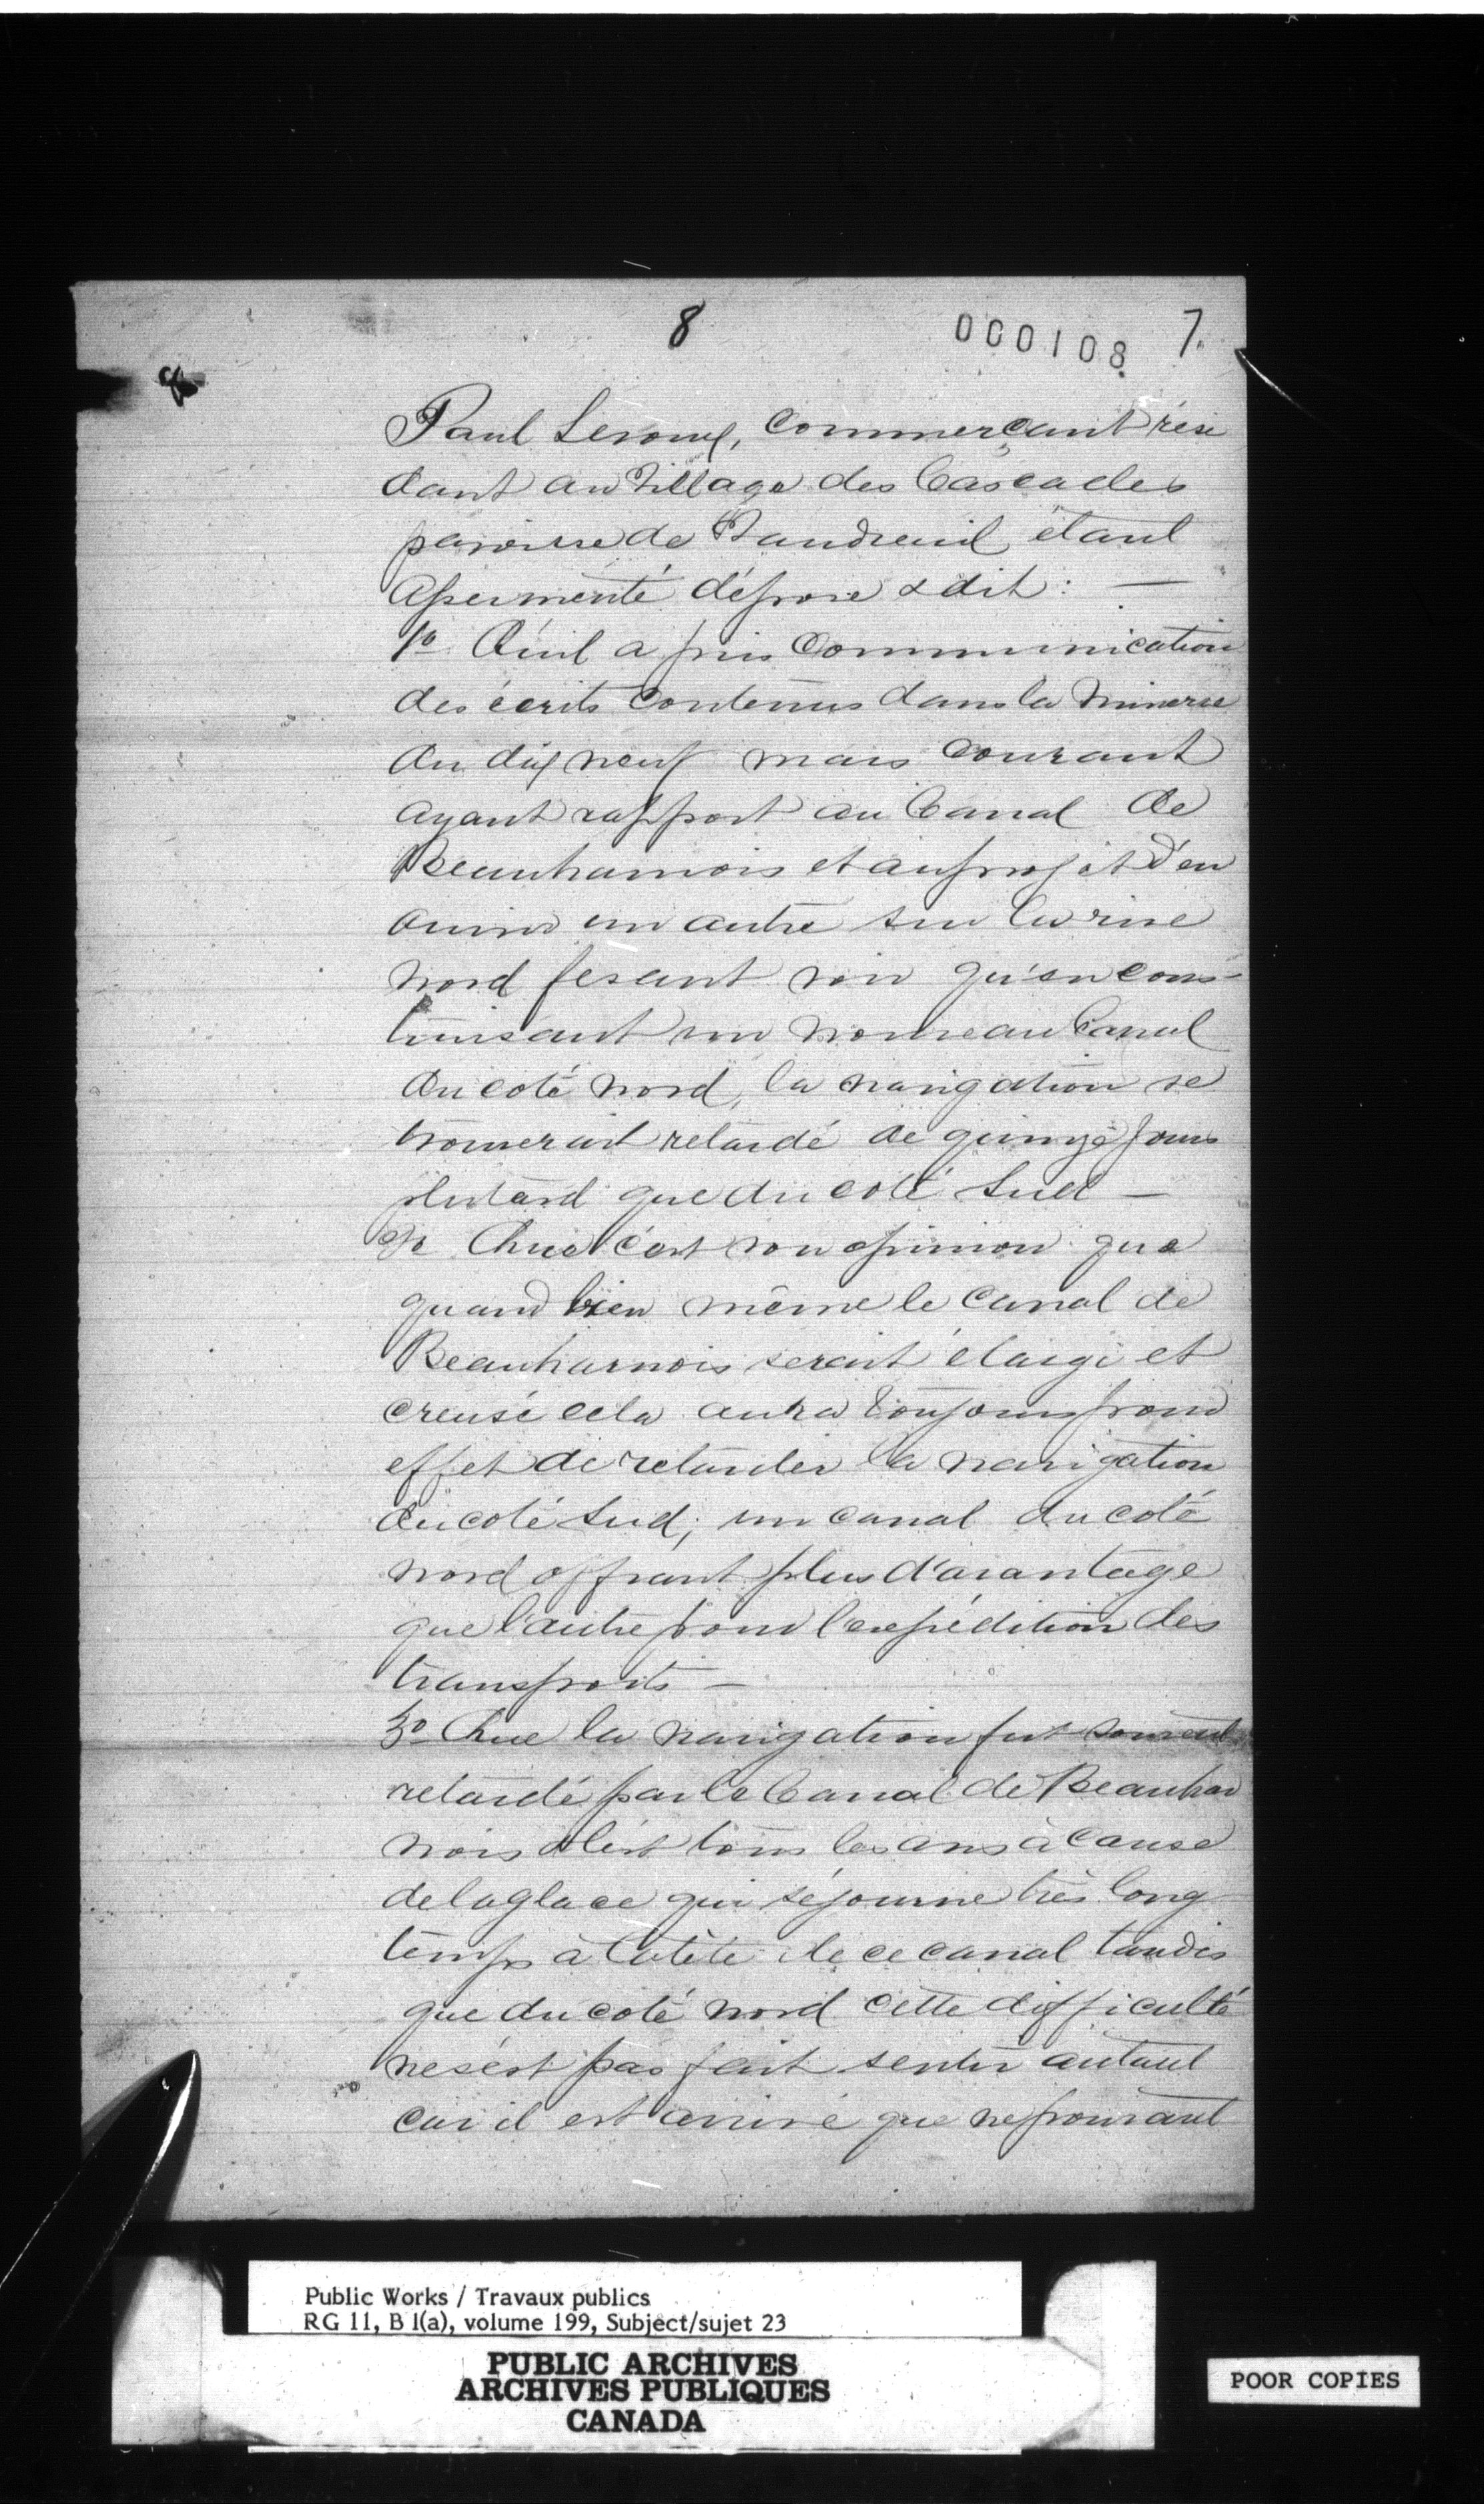 8
000108
7.
8
Paul Leroux, Commerçant rési
dant au Village des Cascades
paroisse de Vaudreuil étant
Assermenté dépose & dit : —
1º Qu'il a pris Communication
des écrits contenus dans la Minerve
du dix neuf mars Courant
ayant rapport au Canal de
Beauharnois et au projet d'en
ouvrir un autre sur la rive
nord fesant voir qu'en cons-
truisant un nouveau Canal
du coté nord, la navigation se
trouverait retardé de quinze jours
plutard que du coté Sud —
2º Que c'est son opinion que
quand bien même le Canal de
Beauharnois serait élargi et
creusé cela aura toujours pour
effet de retarder la navigation
du coté Sud; un canal du coté
nord offrant plus d'avantage
que l'autre pour l'expédition des
transports —
3º Que la navigation fut souvent
retardé par le Canal de Beauhar
nois & l'est tous les ans à cause
de la glace qui séjourne très long
temps à la tête de ce canal tandis
que du coté nord cette difficulté
ne s'est pas fait sentir autant
car il est arrivé que ne pouvant
Public Works / Travaux publics
RG 11, B 1(a), volume 199, Subject/sujet 23
PUBLIC ARCHIVES
ARCHIVES PUBLIQUES
CANADA
POOR COPIES